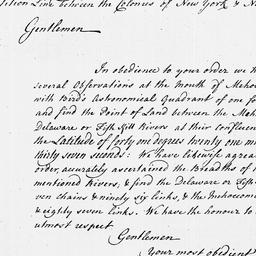 tition Line between the Colonies of New York & N
Gentlemen
In obedience to your order we th
several Observations at the Mouth of Mahoc
with Bird's Astronomical Quadrant of one fo
and find the Point of Land between the Mah
Delaware or Fish Kill Rivers at their confluen
the Latitude of forty one degrees twenty one m
thirty seven seconds: We have likewise agreea
order, accurately ascertained the Breadths of
mentioned Rivers, & find the Delaware or Fish-
ven chains & ninety six links, & the Mahocam
& eighty seven links. We have the honour to
utmost respect
Gentlemen
Your most obedient